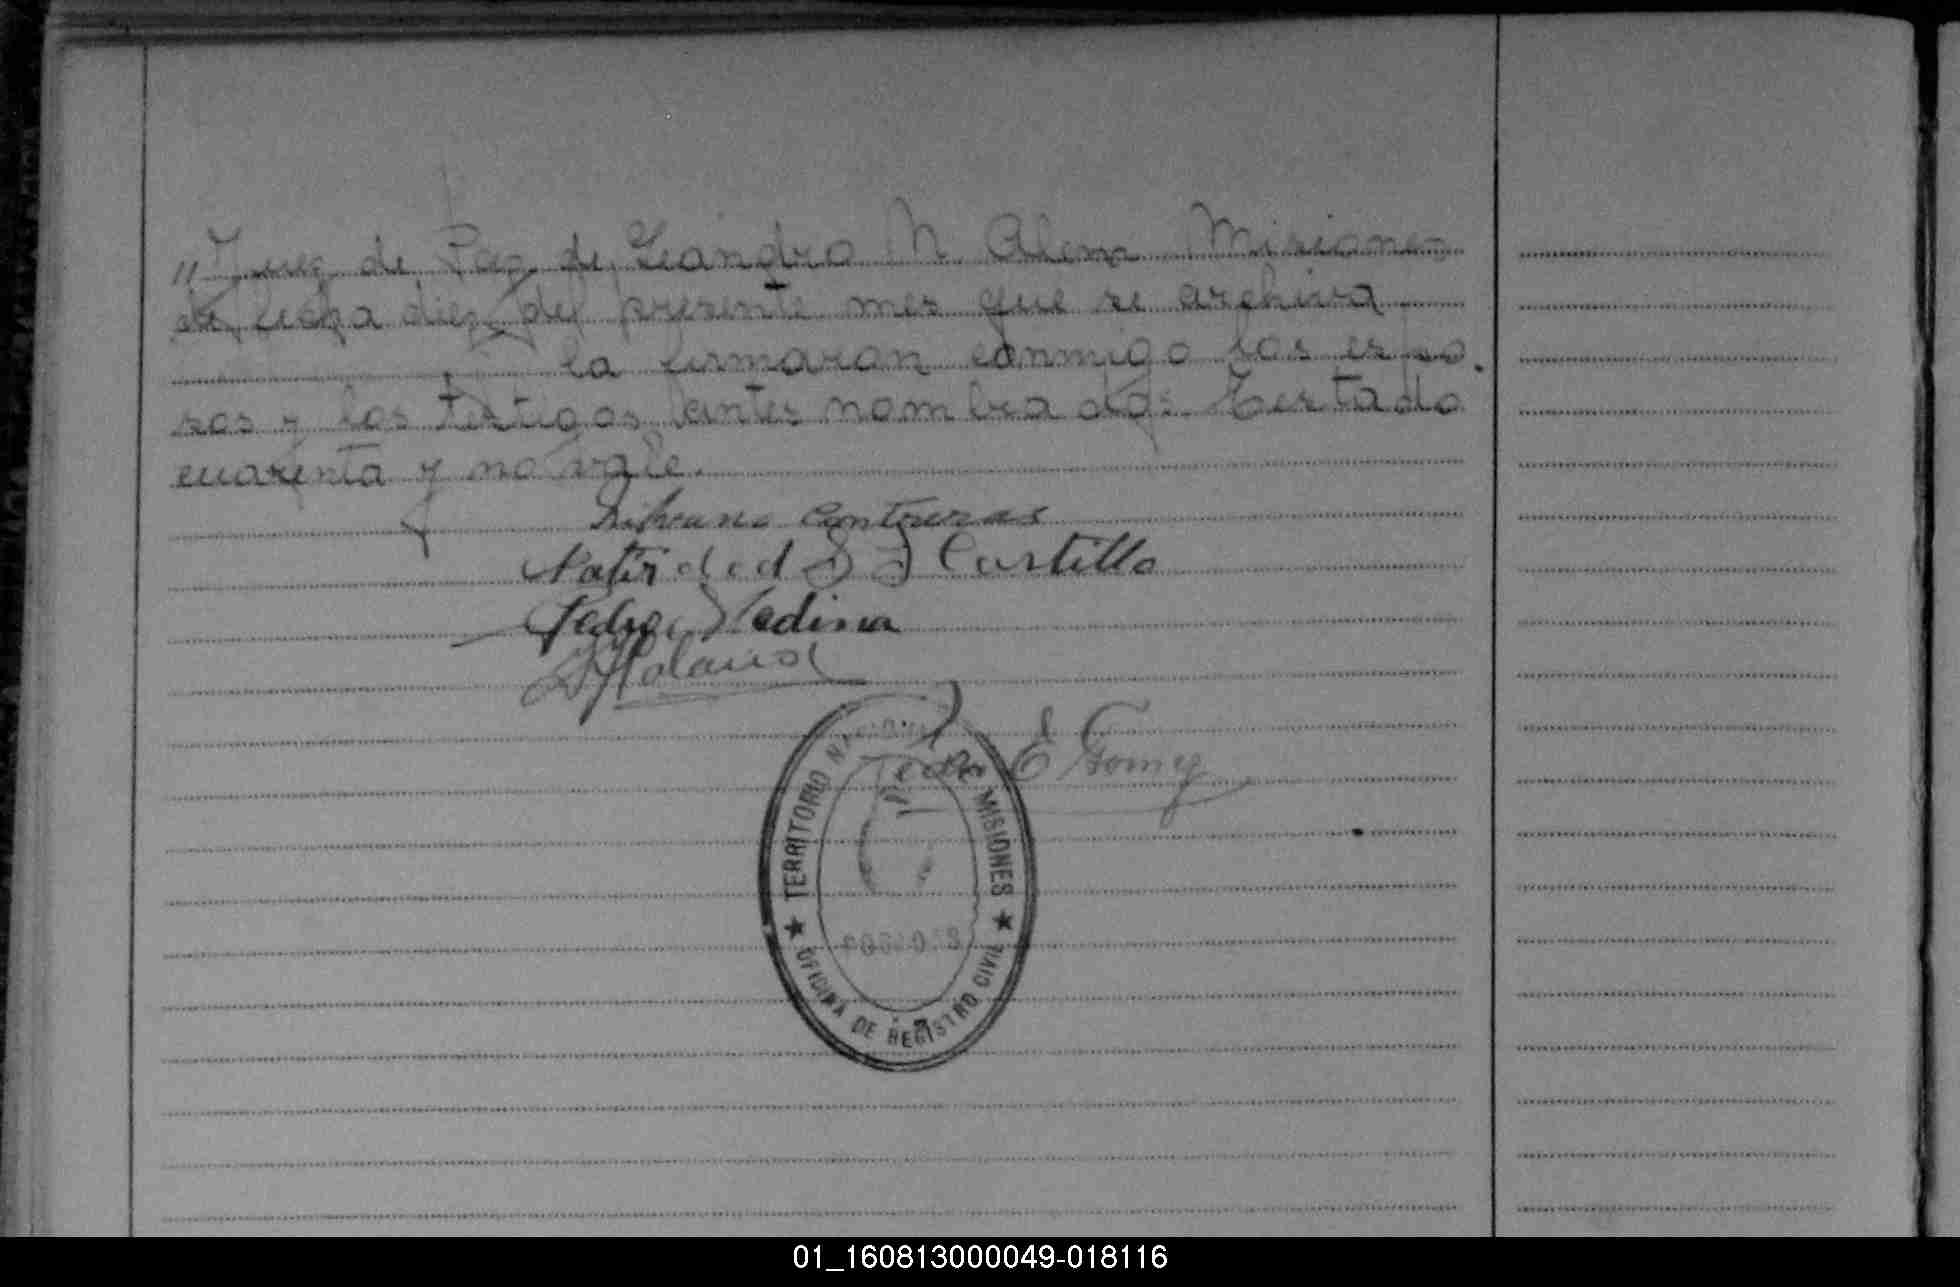 "Juez de Paz de Leandro N. Alem Misiones
de fecha diez del presente mes que se archiva
la firmaran conmigo los espo.
sos y los testigos antes nombrados. Testado
cuarenta y no vale.
Contreras
Natividad S J Castillo
Pedro Medina
Pedro E Gomez
TERRITORIO NACIONAL DE MISIONES
OFICINA DE REGISTRO CIVIL
01_160813000049-018116